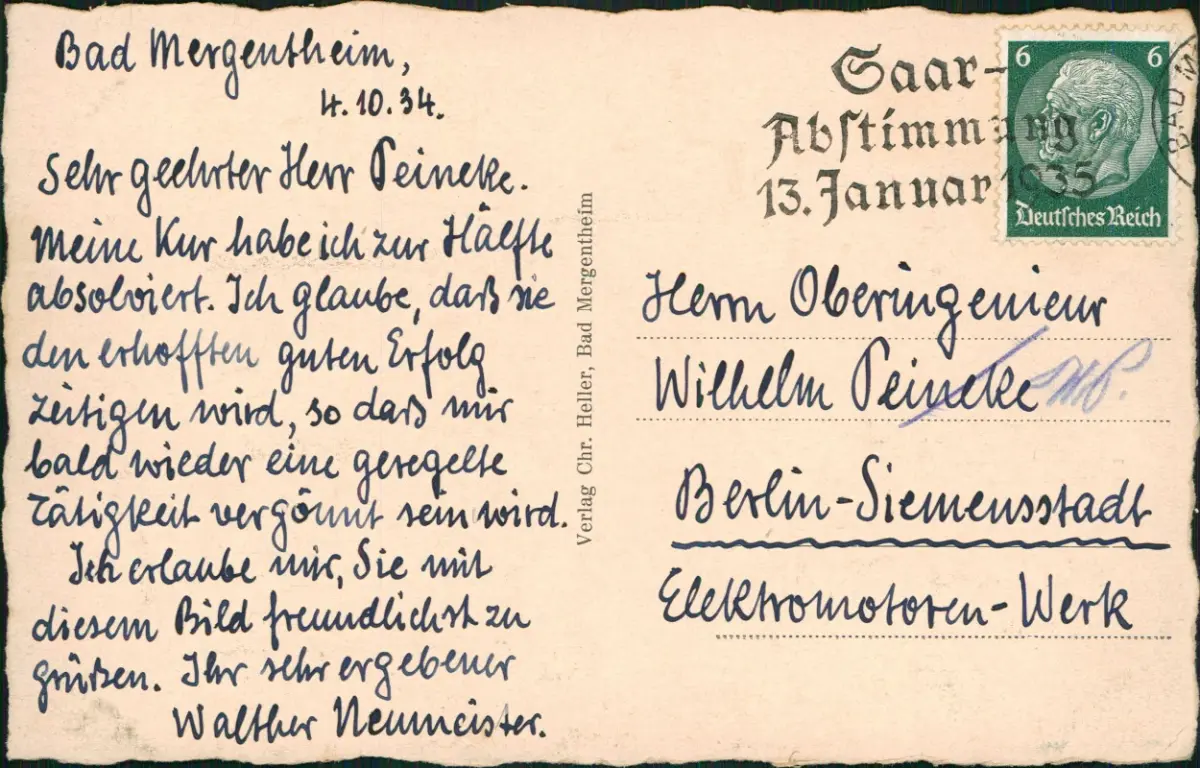 Bad Mergentheim,
4.10.34.
Sehr geehrter Herr Peineke.
Meine Kur habe ich zur Hälfte
absolviert. Ich glaube, daß sie
den erhofften guten Erfolg
zeitigen wird, so daß mir
bald wieder eine geregelte
Tätigkeit vergönnt sein wird.
Ich erlaube mir, Sie mit
diesem Bild freundlichst zu
grüßen. Ihr sehr ergebener
Walther Neumeister.
Verlag Chr. Heller, Bad Mergentheim
Saar-
Abstimmung
13. Januar 1935
6 6
Deutsches Reich
BAD M
Herrn Oberingenieur
Wilhelm Peineke
Berlin-Siemensstadt
Elektromotoren-Werk